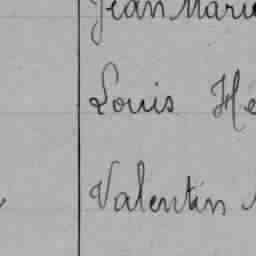 Jean Marie
Louis He
Valentin